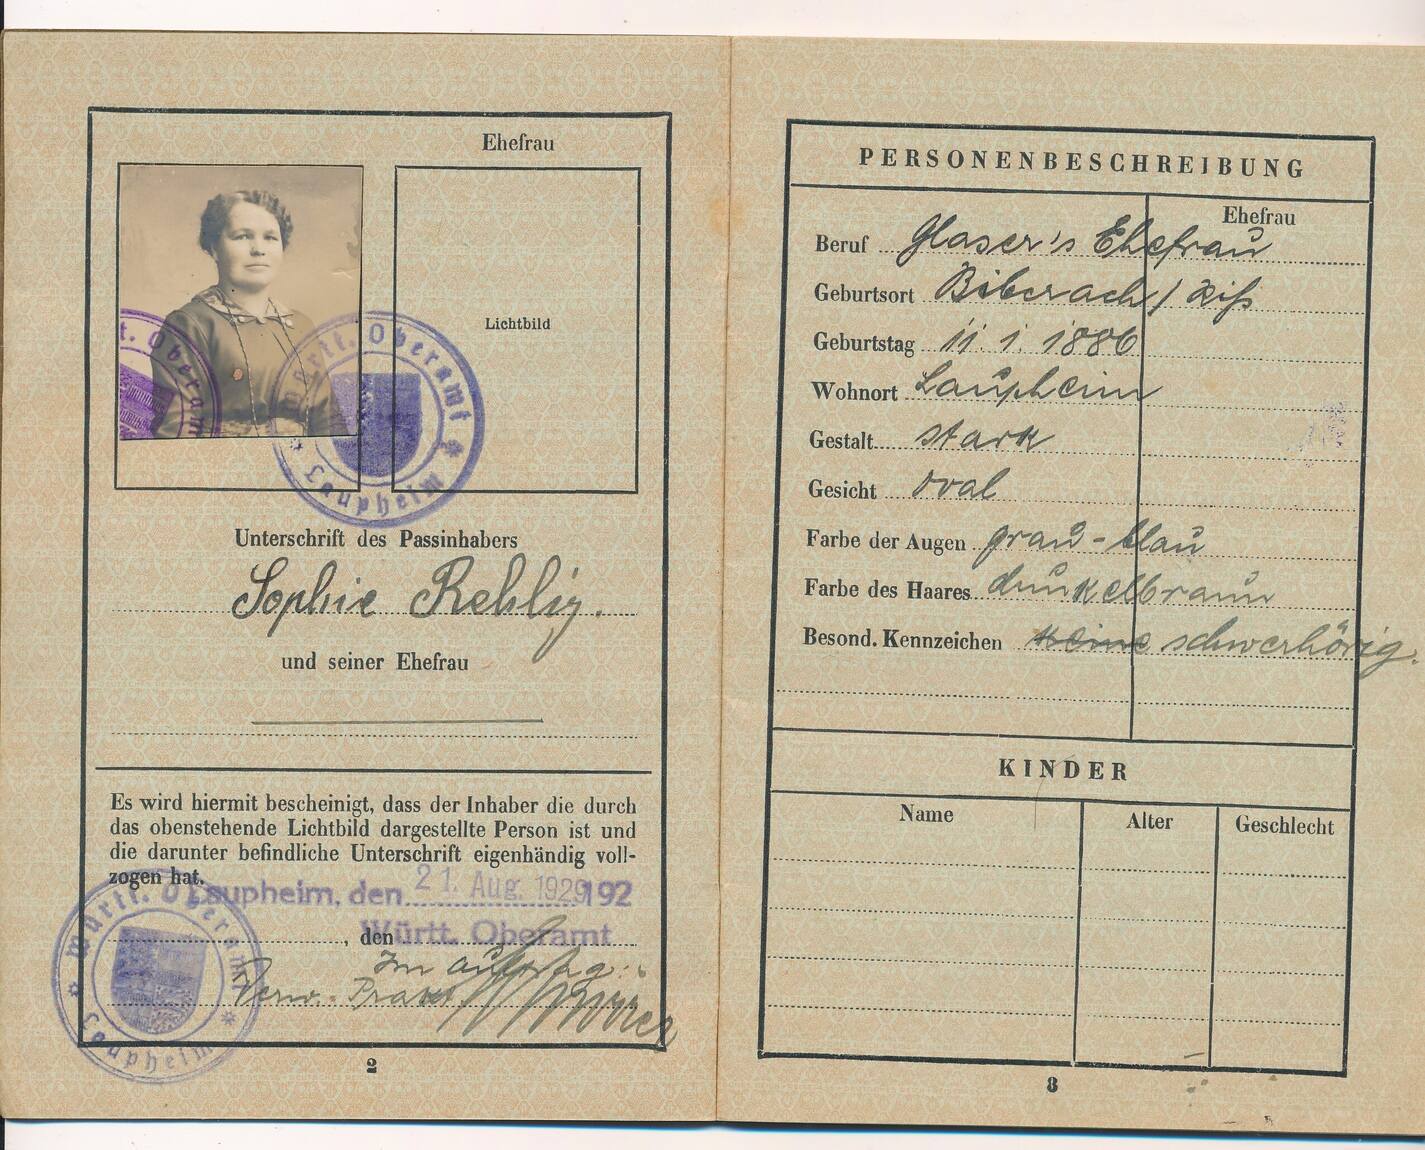 Ehefrau
Lichtbild
Württ. Oberamt
Laupheim
Unterschrift des Passinhabers
Sophie Rehliz.
und seiner Ehefrau
Es wird hiermit bescheinigt, dass der Inhaber die durch
das obenstehende Lichtbild dargestellte Person ist und
die darunter befindliche Unterschrift eigenhändig voll-
zogen hat.
Laupheim, den 21. Aug. 1929 192
, den Württ. Oberamt
Im Auftrag:
Verw. Prakt.
Württ. Oberamt
Laupheim
2
PERSONENBESCHREIBUNG
Ehefrau
Beruf Glaser's Ehefrau
Geburtsort Biberach / Riß
Geburtstag 11. 1. 1886
Wohnort Laupheim
Gestalt stark
Gesicht oval
Farbe der Augen grau-blau
Farbe des Haares dunkelbraun
Besond. Kennzeichen keine schwerhörig.
KINDER
Name Alter Geschlecht
3